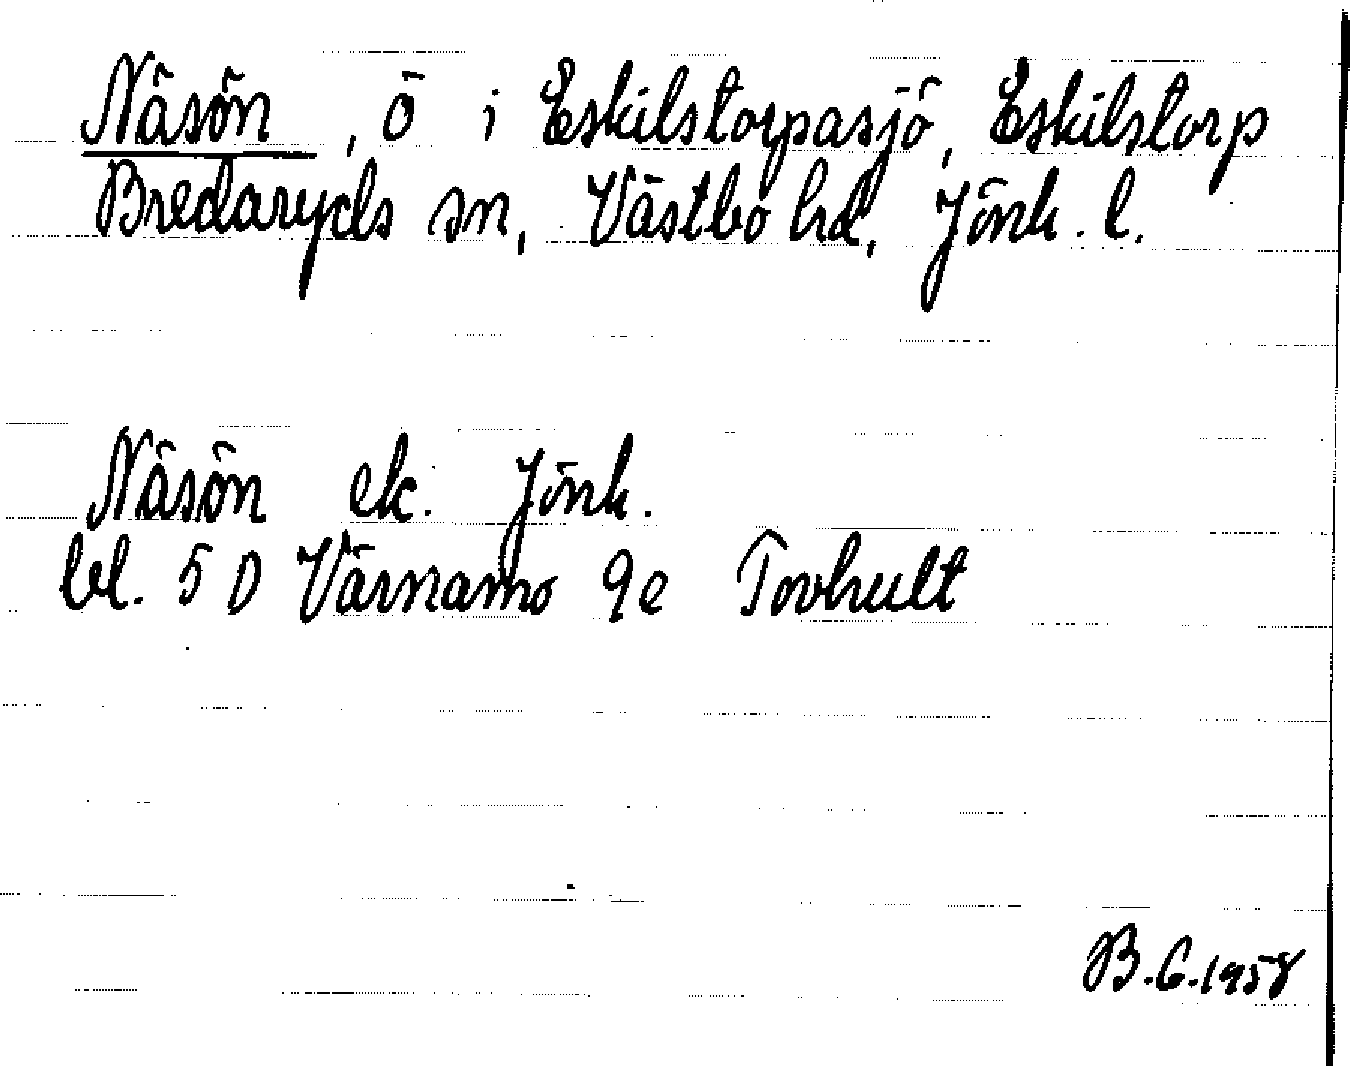 Näsön, ö i Eskilstorpasjö, Eskilstorp
Bredaryds sn, Västbo hd, Jönk. l.
Näsön ek. Jönk.
bl. 5 D Värnamo 9e Tovhult
B.G.1958